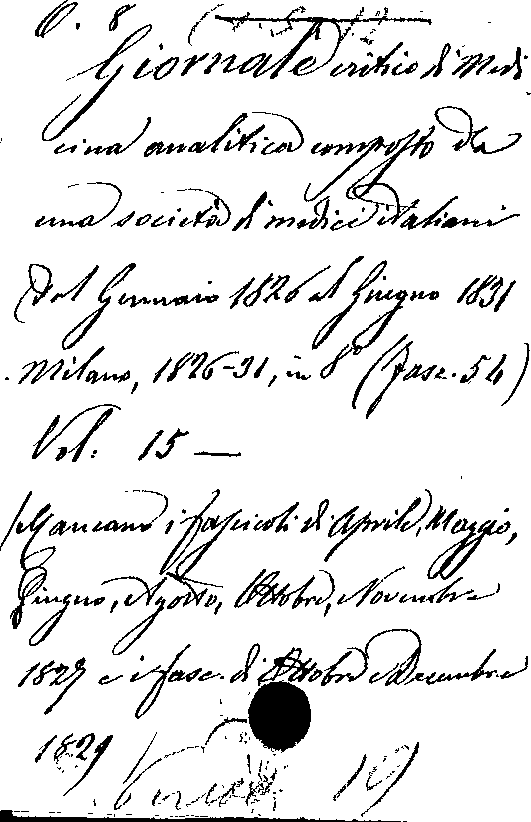 O. 8
Giornale critico di Medi
cina analitica composto da
una società di medici italiani
dal Gennaio 1826 al Giugno 1831
Milano, 1826-31, in 8° (Fasc. 54)
Vol: 15 —
Mancano i fascicoli di Aprile, Maggio,
Giugno, Agosto, Ottobre, Novembre
1827 e i fasc. di Ottobre e Decembre
1829
19